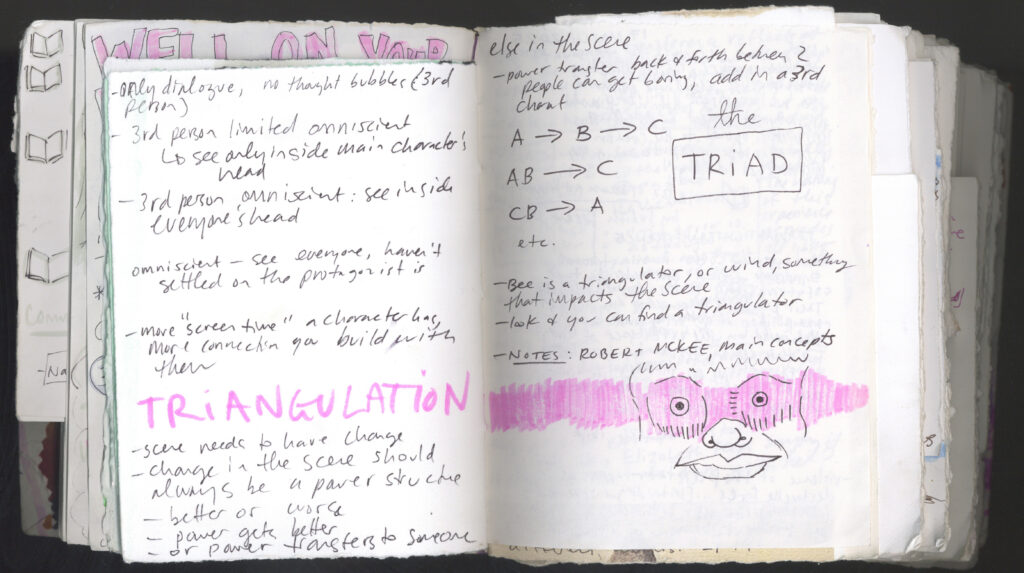 WELL ON YOUR
-only dialogue, no thought bubbles (3rd
person)
- 3rd person limited omniscient
↳ see only inside main character's
head
- 3rd person omniscient: see inside
everyone's head
omniscient - see everyone, haven't
settled on the protagonist is
- more "screen time" a character has,
more connection you build with
them
TRiANGULATiON
- scene needs to have change
- change in the scene should
always be a power structure
- better or worse
- power gets better
- or power transfers to someone
else in the scene
- power transfer back & forth between 2
people can get boring, add in a 3rd
the
TRiAD
A → B → C
AB → C
CB → A
etc.
- Bee is a triangulator, or wind, something
that impacts the scene
- look if you can find a triangulator
- NOTES: ROBERT MCKEE, main concepts